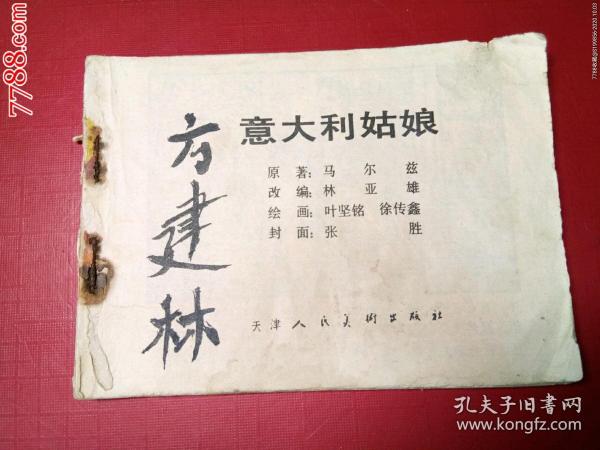 意大利姑娘
原著：马尔兹
改编：林亚雄
绘画：叶坚铭 徐传鑫
封面：张胜
天津人民美术出版社
方建林
7788.com
7788收藏@5199856-2020 10:03
孔夫子旧书网
www.kongfz.com